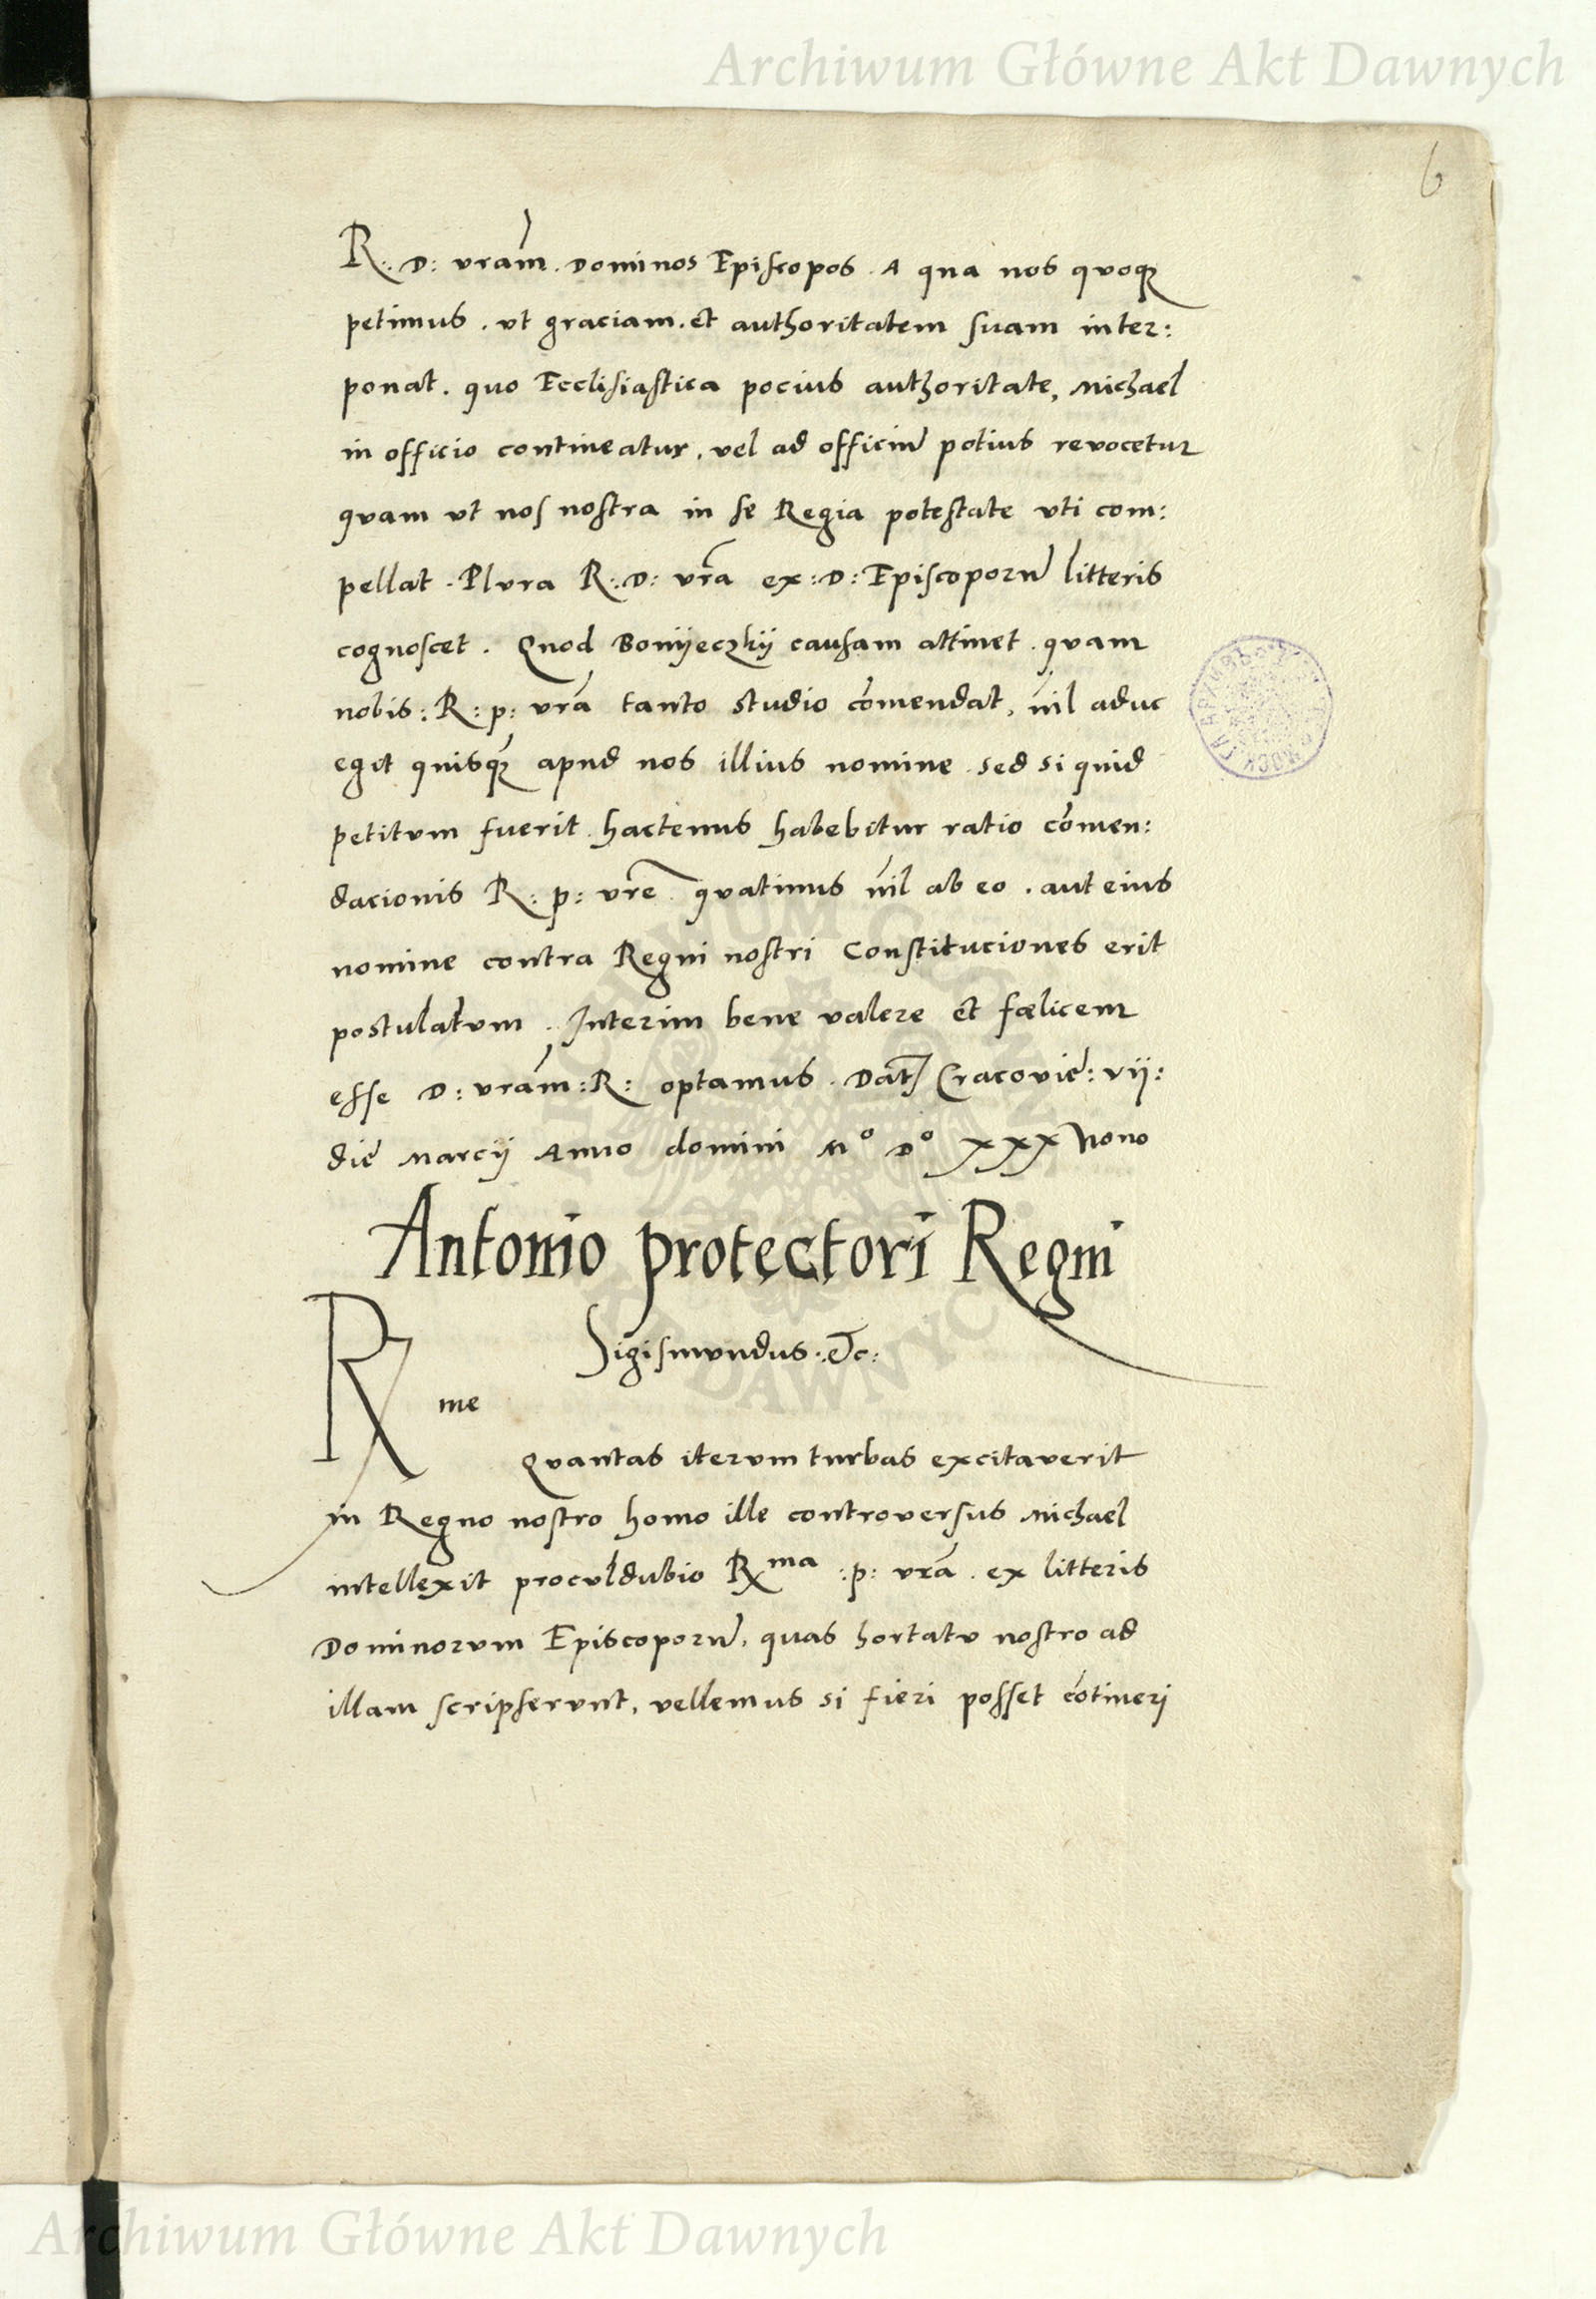 Archiwum Główne Akt Dawnych
6
R. D: vram̃. Dominos Episcopos. A qua nos quoqȝ
petimus. ut graciam. et authoritatem suam inter:
ponat. quo Ecclisiastica pocius authoritate, Michael
in officio contineatur, vel ad officiũ potius revocetur
quam ut nos nostra in se Regia potestate uti com:
pellat. Plura R: D: vrã ex: D: Episcoporũ litteris
cognoscet. Quod Bonijeczkij causam attinet. quam
nobis: R: p: vrã tanto studio cõmendat, nĩl aduc
egit quisqȝ apud nos illius nomine. sed si quid
petitvm fuerit. hactenus habebitur ratio cõmen:
dacionis R: p: vrẽ. quatinus nĩl ab eo. aut eius
nomine contra Regni nostri Constituciones erit
postulatvm. Interim bene valere et fœlicem
esse D: vrãm: R: optamus. Dat Cracovie: vij:
die Marcij Anno domini Mº Dº xxx Nono
Antonio protectori Regni
Sigismvndus. etc:
R me
Qvantas itervm turbas excitaverit
in Regno nostro homo ille controversus Michael
intellexit procvldubio Rma :p: vrã. ex litteris
Dominorvm Episcoporũ, quas hortatv nostro ad
illam scripservnt, vellemus si fieri posset cõtineri
Archiwum Główne Akt Dawnych